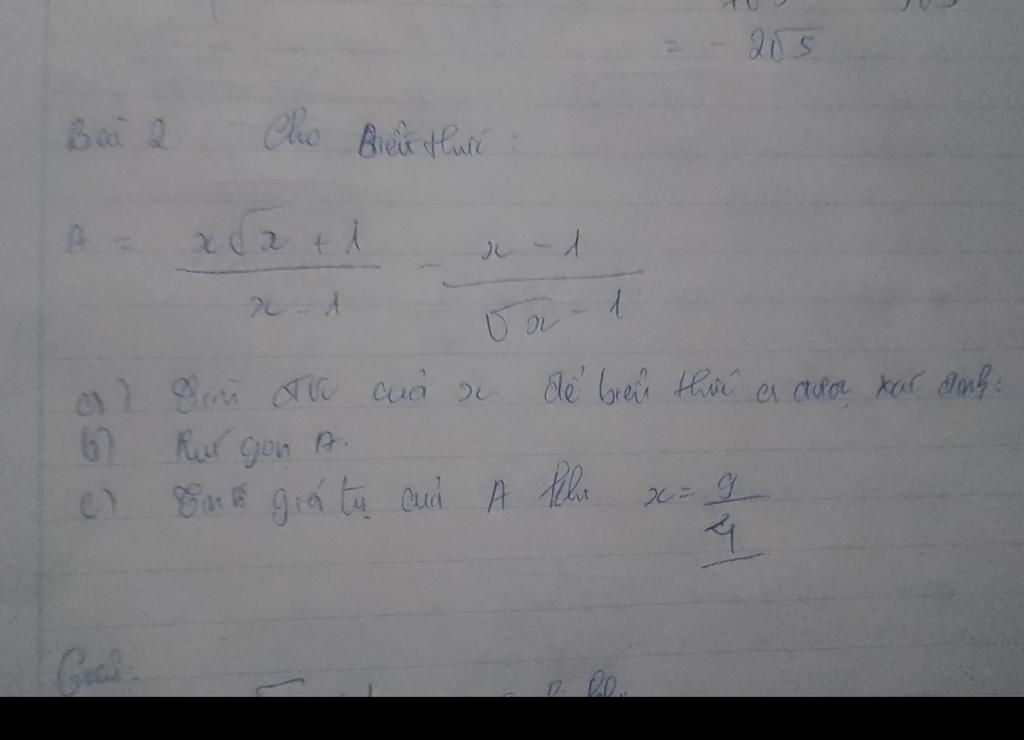 = - 2√5
Bài 2. Cho Biểu thức:
A = (x√x + 1)/(x - 1) - (x - 1)/(√x - 1)
a) Tìm đk của x để biểu thức A được xác định:
b) Rút gọn A.
c) Tính giá trị của A khi x = 9/4
Giải: